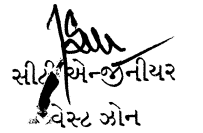 સીટી એન્જીનીયર
વેસ્ટ ઝોન